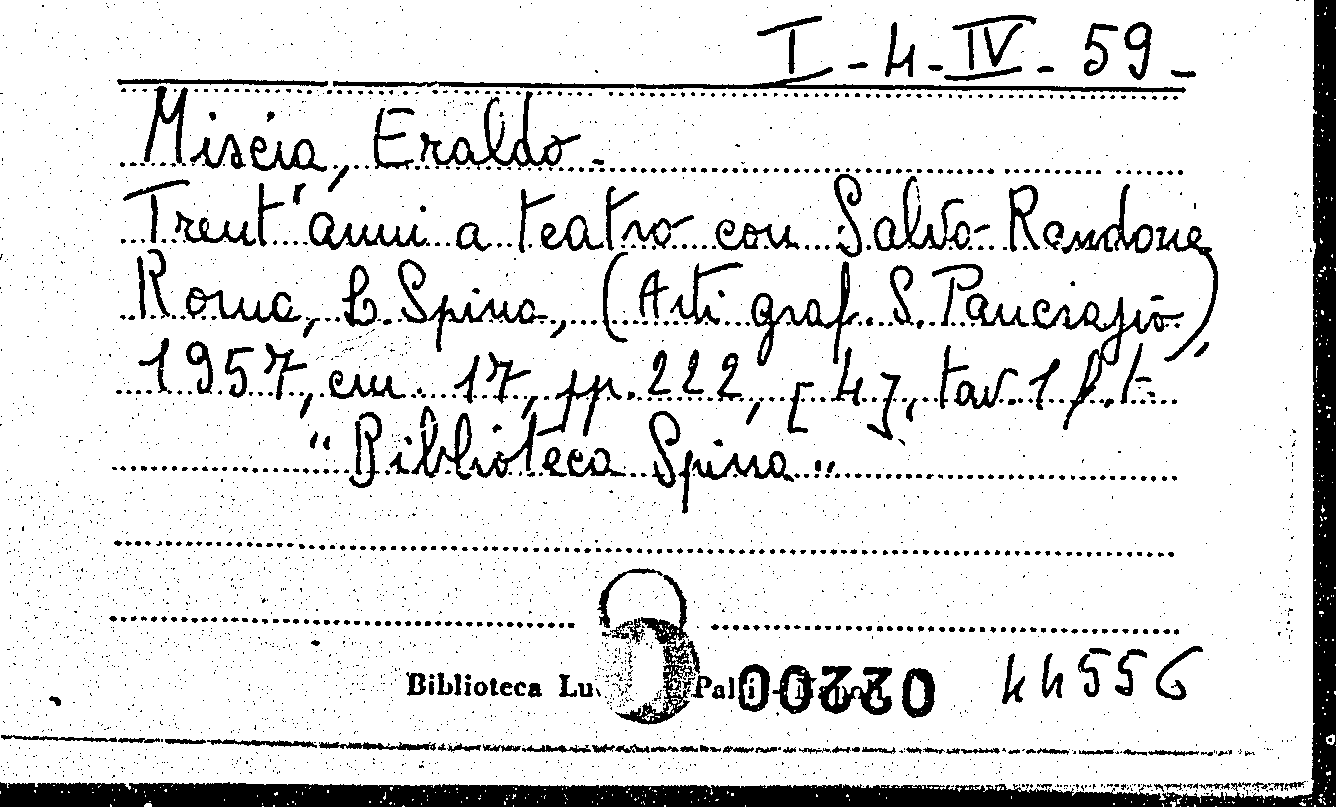 I-4-IV-59-
Miscia, Eraldo.
Trent'anni a teatro con Salvo Randone
Roma, L. Spina, (Arti graf. S. Pancrazio),
1957, cm. 17, pp. 222, [4], tav. 1 f.t.
"Biblioteca Spina"
Biblioteca 44556